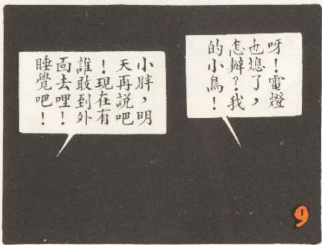 呀！電燈
也熄了，
怎辦？我
的小鳥！
小胖，明
天再說吧
！現在有
誰敢到外
面去哩！
睡覺吧！
9